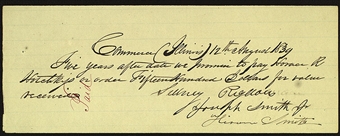 Commerce (Illinois) 12th August 1839
Five years after date we promise to pay Horace R
Hotchkiss or order Fifteen Hundred Dollars for value
received
Paid
Sidney Rigdon
Joseph Smith Jr
Hiram Smith